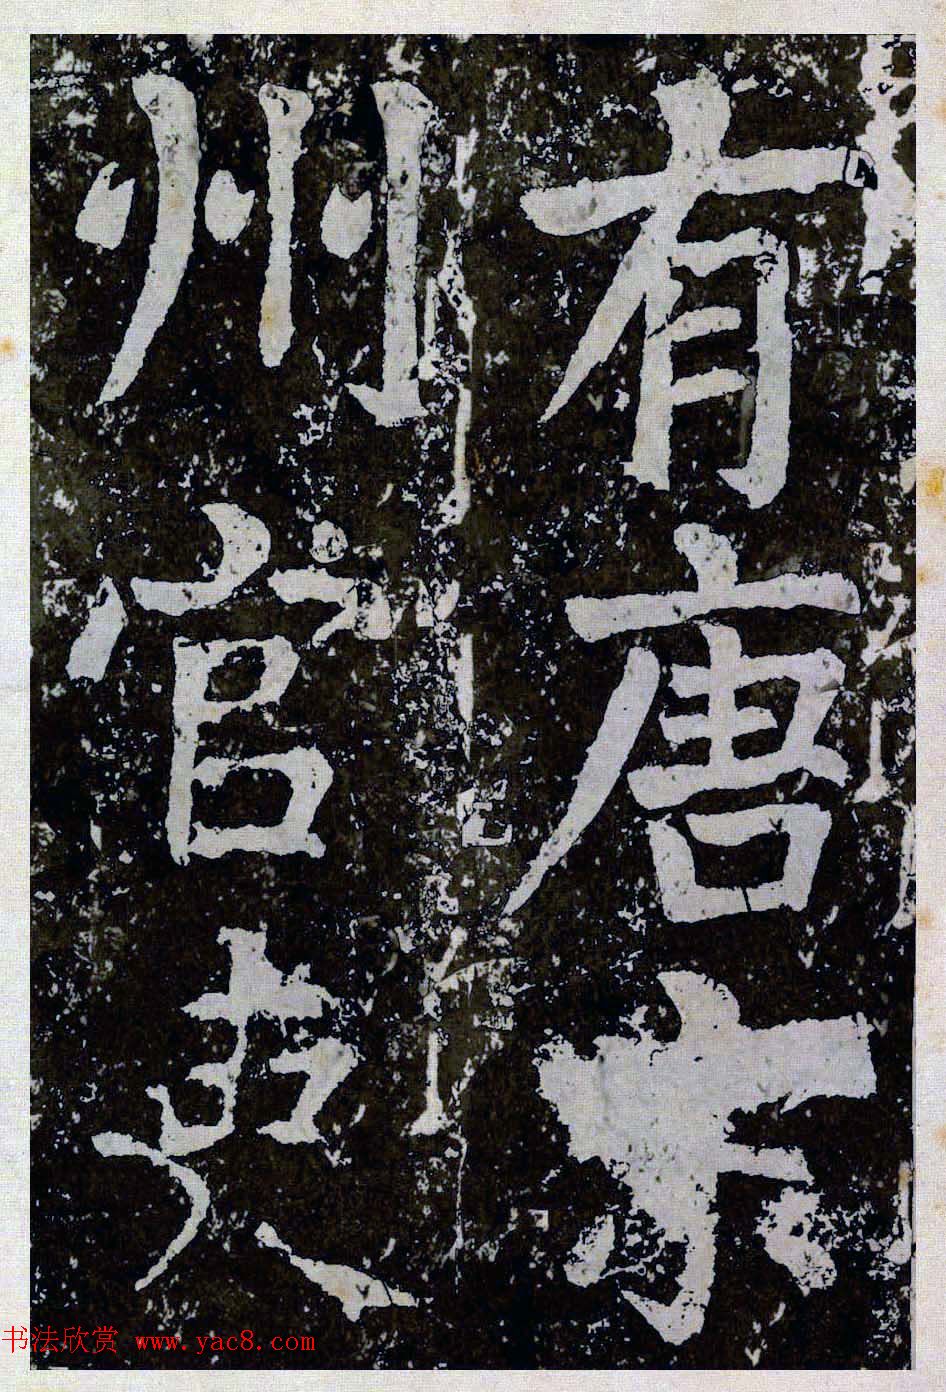 有唐宋
州官吏
书法欣赏 www.yac8.com